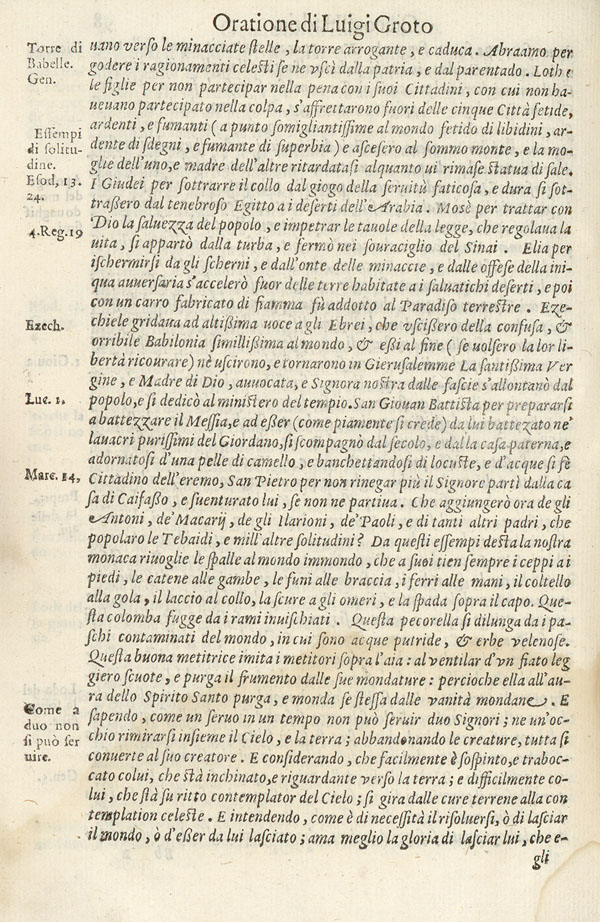 Oratione di Luigi Groto
Torre di
Babelle.
Gen.
uano verso le minacciate stelle, la torre arrogante, e caduca. Abraamo per
godere i ragionamenti celesti se ne vscì dalla patria, e dal parentado. Loth e
le figlie per non partecipar nella pena con i suoi Cittadini, con cui non ha-
ueuano partecipato nella colpa, s'affrettarono fuori delle cinque Città fetide,
Essempi
di solitu-
dine.
Esod, 13.
24.
ardenti, e fumanti (a punto somigliantissime al mondo fetido di libidini, ar-
dente di sdegni, e fumante di superbia) e ascesero al sommo monte, e la mo-
glie dell'uno, e madre dell'altre ritardatasi alquanto ui rimase statua di sale.
I Giudei per sottrarre il collo dal giogo della seruitù faticosa, e dura si sot-
trassero dal tenebroso Egitto a i deserti dell'Arabia. Mosè per trattar con
4.Reg.19
Dio la saluezza del popolo, e impetrar le tauole della legge, che regolaua la
uita, si appartò dalla turba, e fermò nei souraciglio del Sinai. Elia per
ischermirsi da gli scherni, e dall'onte delle minaccie, e dalle offese della ini-
qua auuersaria s'accelerò fuor delle terre habitate a i saluatichi deserti, e poi
con un carro fabricato di fiamma fù addotto al Paradiso terrestre. Eze-
Ezech.
chiele gridaua ad altissima uoce a gli Ebrei, che vscissero della confusa, &
orribile Babilonia simillissima al mondo, & essi al fine (se uolsero la lor li-
bertà ricourare) nè uscirono, e tornarono in Gierusalemme La santissima Ver
gine, e Madre di Dio, auuocata, e Signora nostra dalle fascie s'allontanò dal
Luc. 1.
popolo, e si dedicò al ministero del tempio. San Giouan Battista per prepararsi
a battezzare il Messia, e ad esser (come piamente si crede) da lui battezato ne'
lauacri purissimi del Giordano, si scompagnò dal secolo, e dalla casa paterna, e
adornatosi d'una pelle di camello, e banchettandosi di locuste, e d'acque si fè
Marc. 14,
Cittadino dell'eremo, San Pietro per non rinegar più il Signore partì dalla ca
sa di Caifasso, e suenturato lui, se non ne partiua. Che aggiungerò ora de gli
Antoni, de' Macarij, de gli Ilarioni, de' Paoli, e di tanti altri padri, che
popolaro le Tebaidi, e mill'altre solitudini? Da questi essempi desta la nostra
monaca riuoglie le spalle al mondo immondo, che a suoi tien sempre i ceppi a i
piedi, le catene alle gambe, le funi alle braccia, i ferri alle mani, il coltello
alla gola, il laccio al collo, la scure a gli omeri, e la spada sopra il capo. Que-
sta colomba fugge da i rami inuischiati. Questa pecorella si dilunga da i pa-
schi contaminati del mondo, in cui sono acque putride, & erbe velenose.
Questa buona metitrice imita i metitori sopra l'aia: al ventilar d'vn fiato leg
giero scuote, e purga il frumento dalle sue mondature: percioche ella all'au-
ra dello Spirito Santo purga, e monda se stessa dalle vanità mondane. E
Come a
duo non
si può ser
uire.
sapendo, come un seruo in un tempo non può seruir duo Signori; ne un'oc-
chio rimirarsi insieme il Cielo, e la terra; abbandonando le creature, tutta si
conuerte al suo creatore. E considerando, che facilmente è sospinto, e traboc-
cato colui, che stà inchinato, e riguardante verso la terra; e difficilmente co-
lui, che stà su ritto contemplator del Cielo; si gira dalle cure terrene alla con
templation celeste. E intendendo, come è di necessità il risoluersi, ò di lasciar
il mondo, ò d'esser da lui lasciato; ama meglio la gloria di lasciar lui, che e-
gli